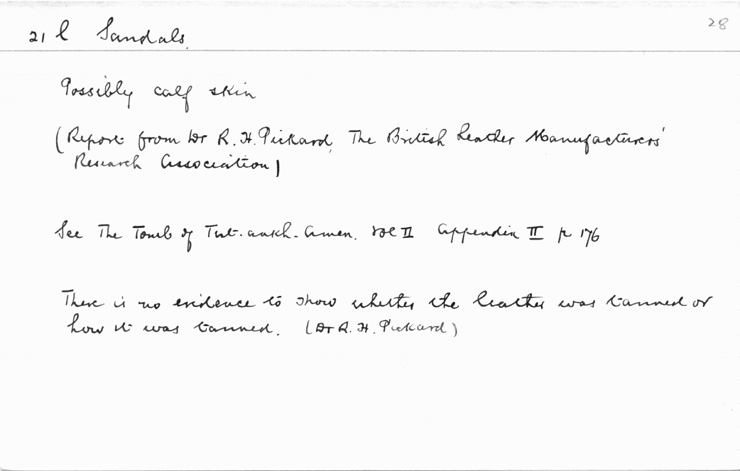 28
21 l Sandals.
Possibly calf skin
(Report from Dr R. H. Pickard, The British Leather Manufacturers'
Research Association)
See The Tomb of Tut-ankh-Amen. Vol II Appendix II p 176
There is no evidence to show whether the leather was tanned or
how it was tanned. (Dr R. H. Pickard)